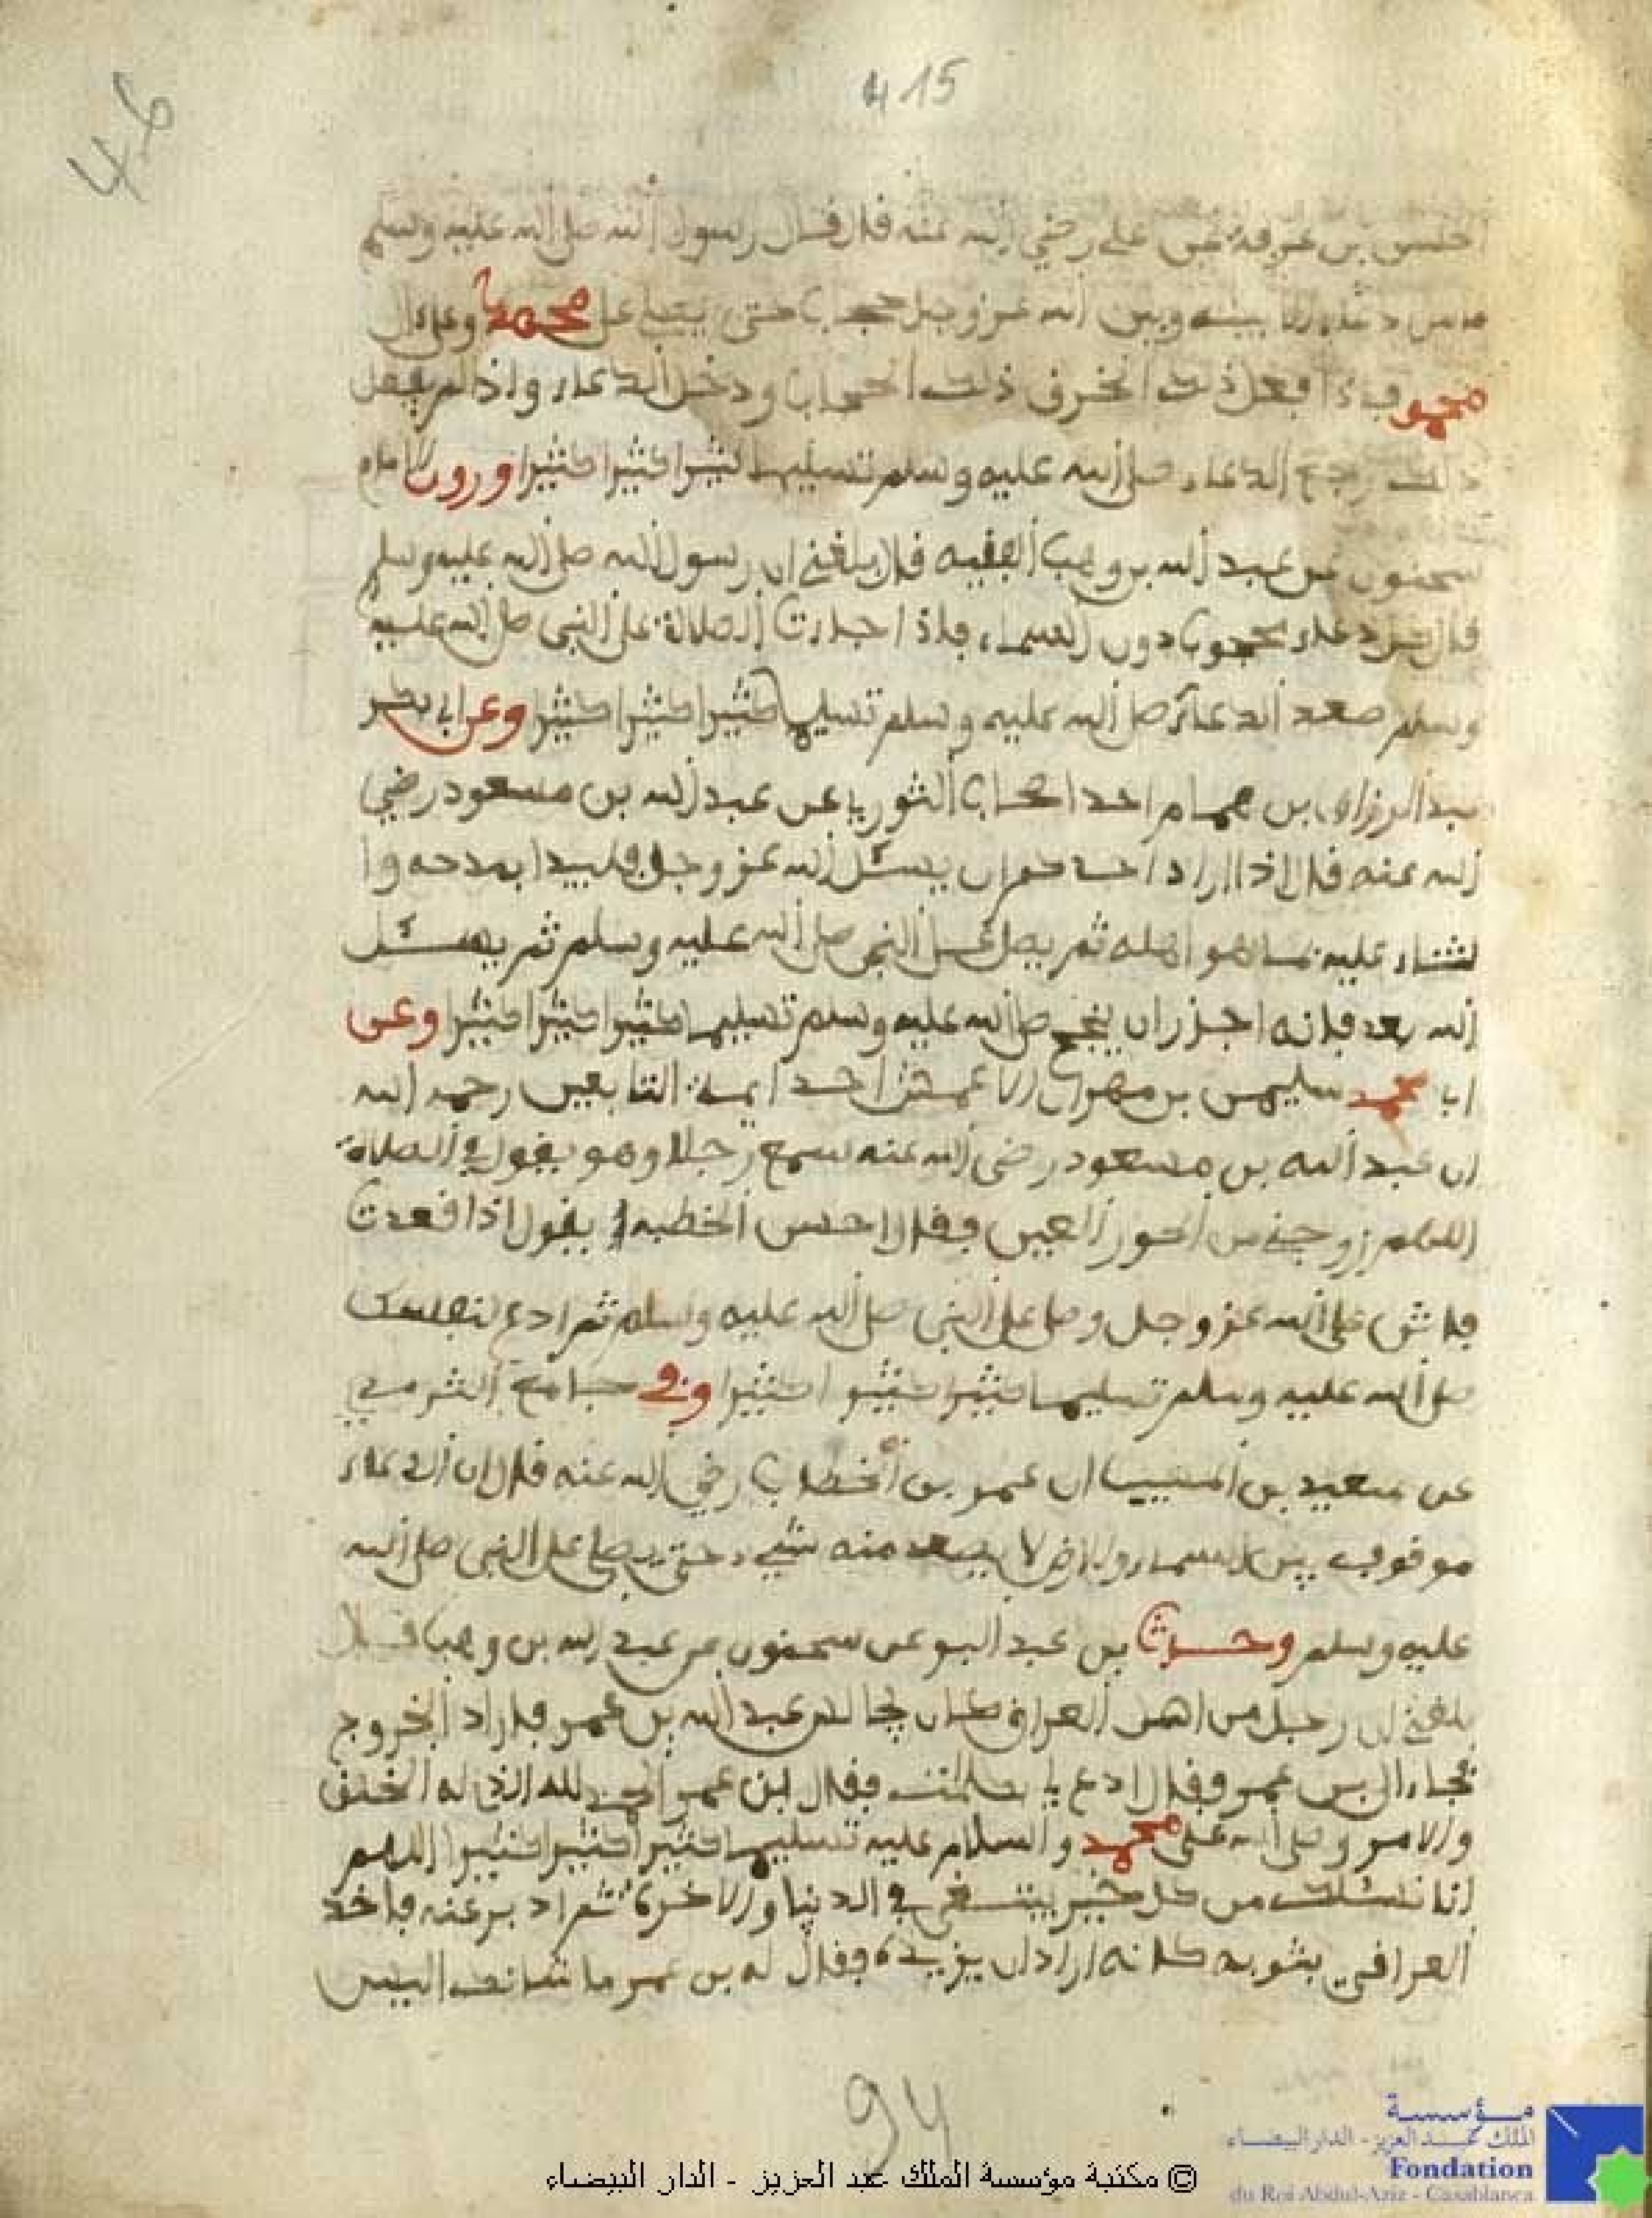 415
46
الحسن بن عرفة عن علي رضي الله عنه قال قال رسول الله صلى الله عليه وسلم
ما من دعاء الا بينه وبين الله عز وجل حجاب حتى يصلى على محمد وعلى ال
محمد فاذا فعل ذلك انخرق ذلك الحجاب ودخل الدعاء واذا لم يفعل
ذلك رجع الدعاء صلى الله عليه وسلم تسليما كثيرا كثيرا كثيرا وروى الامام
سحنون عن عبد الله بن وهب الفقيه قال بلغني ان رسول الله صلى الله عليه وسلم
قال كل دعاء محجوب دون السماء فاذا جاءت الصلاة على النبي صلى الله عليه
وسلم صعد الدعاء صلى الله عليه وسلم تسليما كثيرا كثيرا كثيرا وعن ابي بكر
عبد الرزاق بن همام احد اصحاب الثوري عن عبد الله بن مسعود رضي
الله عنه قال اذا اراد احدكم ان يسئل الله عز وجل فليبدا بمدحه وا
لثناء عليه بما هو اهله ثم يصل على النبي صلى الله عليه وسلم ثم يسئل
الله بعد فانه اجدر ان ينجح صلى الله عليه وسلم تسليما كثيرا كثيرا كثيرا وعن
ابي محمد سليمن بن مهران الاعمش احد ايمة التابعين رحمه الله
ان عبد الله بن مسعود رضي الله عنه سمع رجلا وهو يقول في الصلاة
اللهم زوجني من الحور العين فقال احسن الخطبة يقول اذا قعدت
فاثن على الله عز وجل وصل على النبي صلى الله عليه وسلم ثم ادع لنفسك
صلى الله عليه وسلم تسليما كثيرا كثيرا كثيرا وفي جامع الترمذي
عن سعيد بن المسيب ان عمر بن الخطاب رضي الله عنه قال ان الدعاء
موقوف بين السماء والارض لا يصعد منه شيء حتى يصلى على النبي صلى الله
عليه وسلم وحدث بن عبد البر عن سحنون عن عبد الله بن وهب قال
بلغني ان رجلا من اهل العراق كان يجالس عبد الله بن عمر فاراد الخروج
فجاء الى بن عمر فقال ادع لي فقال ابن عمر الحمد لله الذي له الخلق
والامر وصلى الله على محمد والسلام عليه تسليما كثيرا كثيرا كثيرا اللهم
انا نسئلك من كل خير ينبغي في الدنيا والاخرة ثم ادبر عنه فاخذ
العراقي بثوبه كانه اراد ان يزيده فقال له بن عمر ما شانك اليس
94
© مكتبة مؤسسة الملك عبد العزيز - الدار البيضاء
مؤسسة
الملك عبد العزيز - الدار البيضاء
Fondation
du Roi Abdul-Aziz - Casablanca